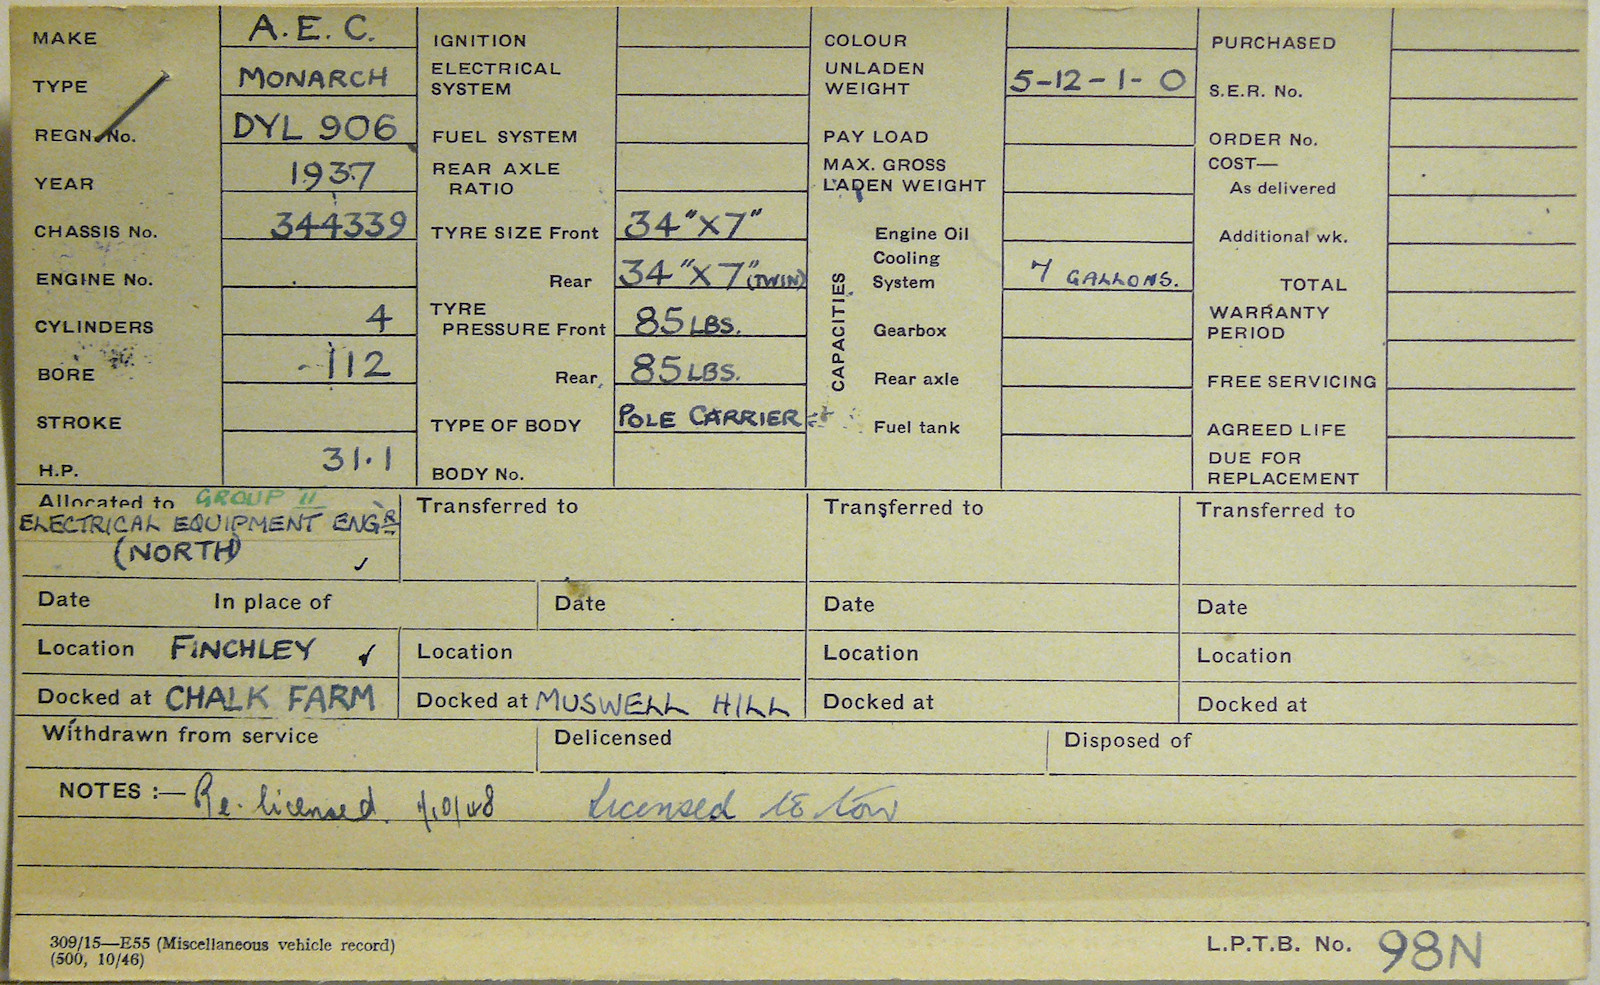 MAKE A.E.C.
TYPE MONARCH
REGN. No. DYL 906
YEAR 1937
CHASSIS No. 344339
ENGINE No.
CYLINDERS 4
BORE 112
STROKE
H.P. 31.1
IGNITION
ELECTRICAL
SYSTEM
FUEL SYSTEM
REAR AXLE
RATIO
TYRE SIZE Front 34"X7"
Rear 34"X7" (TWIN)
TYRE
PRESSURE Front 85 LBS.
Rear, 85 LBS.
TYPE OF BODY POLE CARRIER
BODY No.
COLOUR
UNLADEN
WEIGHT 5-12-1-0
PAY LOAD
MAX. GROSS
LADEN WEIGHT
CAPACITIES
Engine Oil
Cooling
System 7 GALLONS.
Gearbox
Rear axle
Fuel tank
PURCHASED
S.E.R. No.
ORDER No.
COST—
As delivered
Additional wk.
TOTAL
WARRANTY
PERIOD
FREE SERVICING
AGREED LIFE
DUE FOR
REPLACEMENT
Allocated to GROUP 11
ELECTRICAL EQUIPMENT ENGR
(NORTH)
Transferred to
Transferred to
Transferred to
Date In place of Date Date Date
Location FINCHLEY Location Location Location
Docked at CHALK FARM Docked at MUSWELL HILL Docked at Docked at
Withdrawn from service Delicensed Disposed of
NOTES :— Re-licensed 1/10/48 Licensed to tow
309/15—E55 (Miscellaneous vehicle record)
(500, 10/46)
L.P.T.B. No. 98N